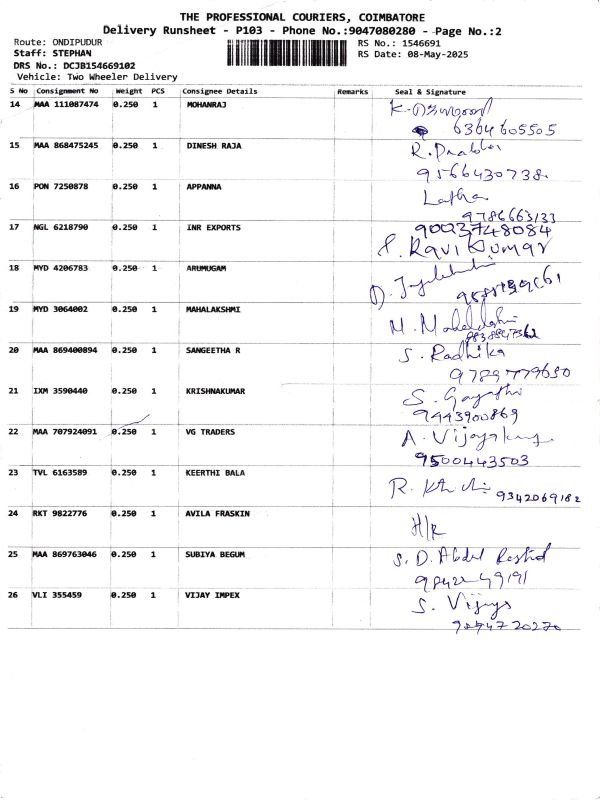 THE PROFESSIONAL COURIERS, COIMBATORE
Delivery Runsheet - P103 - Phone No.:9047080280 - Page No.:2
Route: ONDIPUDUR RS No.: 1546691
Staff: STEPHAN RS Date: 08-May-2025
DRS No.: DCJB154669102
Vehicle: Two Wheeler Delivery
S No Consignment No Weight PCS Consignee Details Remarks Seal & Signature
14 MAA 111087474 0.250 1 MOHANRAJ K.
6364605505
15 MAA 868475245 0.250 1 DINESH RAJA R. Prabhu
9566430738
16 PON 7250878 0.250 1 APPANNA Latha
9786663133
17 NGL 6218790 0.250 1 INR EXPORTS 90023748084
P. Ravi Kumar
18 MYD 4206783 0.250 1 ARUMUGAM D.
19 MYD 3064002 0.250 1 MAHALAKSHMI M. Mahalakshmi
20 MAA 869400894 0.250 1 SANGEETHA R S. Radhika
9789779650
21 IXM 3590440 0.250 1 KRISHNAKUMAR S. Gayathri
9443900869
22 MAA 707924091 0.250 1 VG TRADERS A. Vijayakumar
9500443503
23 TVL 6163589 0.250 1 KEERTHI BALA R. 9342069182
24 RKT 9822776 0.250 1 AVILA FRASKIN H/R
25 MAA 869763046 0.250 1 SUBIYA BEGUM S. D. Abdul Rashid
26 VLI 355459 0.250 1 VIJAY IMPEX S. Vijaya